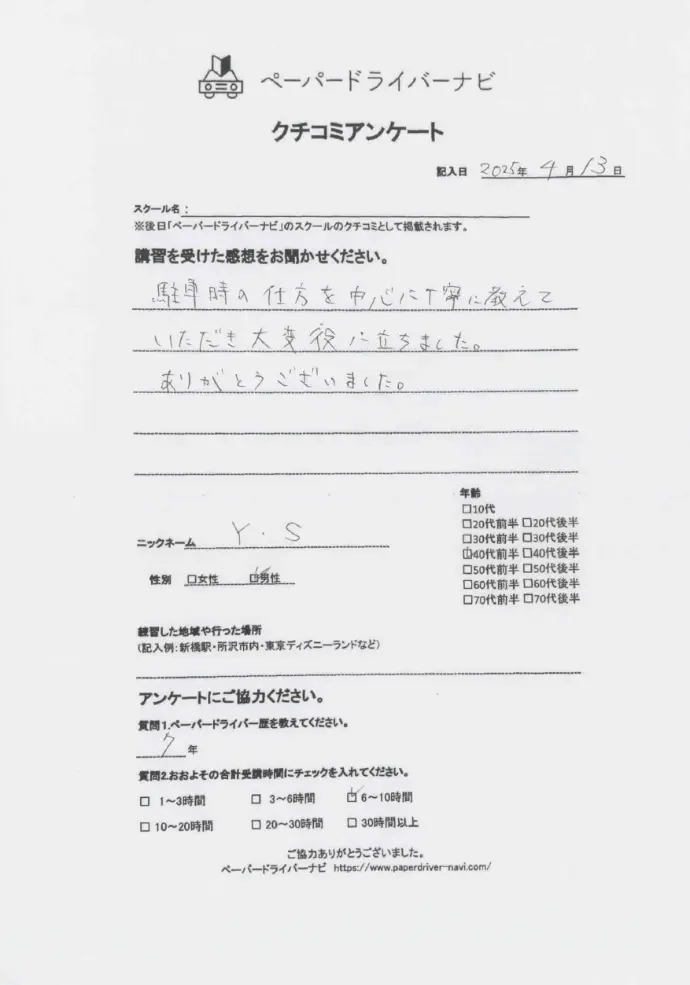 ペーパードライバーナビ
クチコミアンケート
記入日 2025年 4月13日
スクール名：
※後日「ペーパードライバーナビ」のスクールのクチコミとして掲載されます。
講習を受けた感想をお聞かせください。
駐車時の仕方を中心に丁寧に教えて
いただき大変役に立ちました。
ありがとうございました。
年齢
□10代
□20代前半 □20代後半
□30代前半 □30代後半
☑40代前半 □40代後半
□50代前半 □50代後半
□60代前半 □60代後半
□70代前半 □70代後半
ニックネーム Y・S
性別 □女性 ☑男性
練習した地域や行った場所
(記入例:新橋駅・所沢市内・東京ディズニーランドなど)
アンケートにご協力ください。
質問1.ペーパードライバー歴を教えてください。
7年
質問2.おおよその合計受講時間にチェックを入れてください。
□ 1～3時間 □ 3～6時間 ☑ 6～10時間
□ 10～20時間 □ 20～30時間 □ 30時間以上
ご協力ありがとうございました。
ペーパードライバーナビ https://www.paperdriver-navi.com/